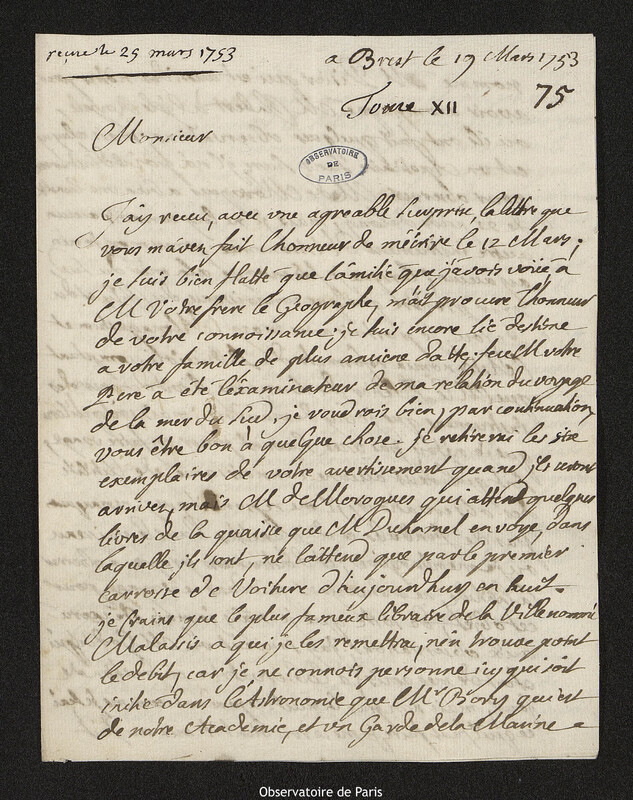 reçue le 25 mars 1753
a Brest le 19 Mars 1753
Tome XII
75
Monsieur
OBSERVATOIRE
DE
PARIS
J'ay receu, avec une agreable surprise, la lettre que
vous m'avez fait l'honneur de m'écrire le 12 Mars;
je suis bien flatté que l'amitié que j'avois voüée à
M Votre frere le Geographe, m'ait procuré l'honneur
de votre connoissance. je suis encore lié d'estime
a votre famille de plus anciene datte; feu M votre
Pere a été l'examinateur de ma relation du voyage
de la mer du Sud, je voudrois bien, par continuation,
vous être bon à quelque chose. je retirerai les six
exemplaires de votre avertissement quand ils seront
arrivez, mais M de Morogues qui attend quelques
livres de la quaisse que M Duhamel envoye, dans
laquelle ils sont, ne l'attend que par le premier
carrosse de Voiture d'aujourdhuy en huit.
je crains que le plus fameux libraire de la Ville nommé
Malassis a qui je les remettrai, n'en trouve point
le debit, car je ne connois personne icy qui soit
initié dans l'Astronomie que Mr Bory qui est
de notre Academie, et un Garde de la Marine
Observatoire de Paris